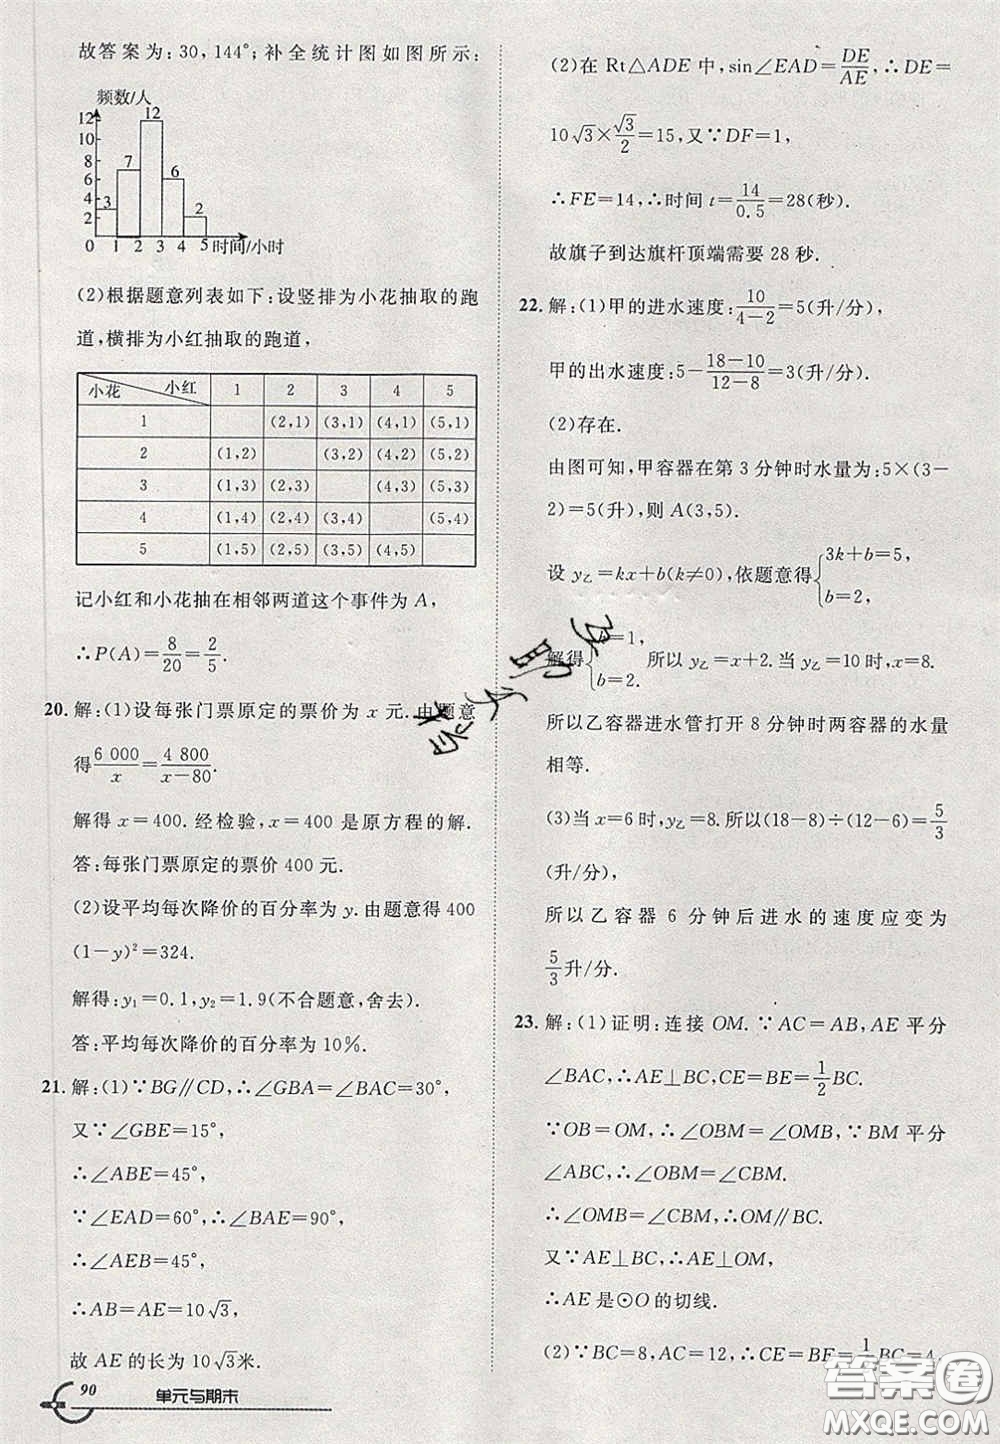 故答案为:30,144°;补全统计图如图所示:
频数/人
12
10
8
6
4
2
0
3
7
12
6
2
1 2 3 4 5 时间/小时
(2)根据题意列表如下:设竖排为小花抽取的跑
道,横排为小红抽取的跑道,
小花 小红 1 2 3 4 5
1 (2,1) (3,1) (4,1) (5,1)
2 (1,2) (3,2) (4,2) (5,2)
3 (1,3) (2,3) (4,3) (5,3)
4 (1,4) (2,4) (3,4) (5,4)
5 (1,5) (2,5) (3,5) (4,5)
记小红和小花抽在相邻两道这个事件为 A,
∴P(A)=8/20=2/5.
20.解:(1)设每张门票原定的票价为 x 元.由题意
得6 000/x=4 800/(x-80).
解得 x=400.经检验,x=400 是原方程的解.
答:每张门票原定的票价 400 元.
(2)设平均每次降价的百分率为 y.由题意得 400
(1-y)²=324.
解得:y₁=0.1,y₂=1.9(不合题意,舍去).
答:平均每次降价的百分率为 10%.
21.解:(1)∵BG∥CD,∴∠GBA=∠BAC=30°,
又∵∠GBE=15°,
∴∠ABE=45°,
∵∠EAD=60°,∴∠BAE=90°,
∴∠AEB=45°,
∴AB=AE=10√3,
故 AE 的长为 10√3米.
90 单元与期末
(2)在 Rt△ADE 中,sin∠EAD=DE/AE,∴DE=
10√3×√3/2=15,又∵DF=1,
∴FE=14,∴时间 t=14/0.5=28(秒).
故旗子到达旗杆顶端需要 28 秒.
22.解:(1)甲的进水速度:10/(4-2)=5(升/分),
甲的出水速度:5-(18-10)/(12-8)=3(升/分).
(2)存在.
由图可知,甲容器在第 3 分钟时水量为:5×(3-
2)=5(升),则 A(3,5).
设 y乙=kx+b(k≠0),依题意得{3k+b=5,
b=2.
解得{k=1,
b=2.
所以 y乙=x+2.当 y乙=10时,x=8.
所以乙容器进水管打开 8 分钟时两容器的水量
相等.
(3)当 x=6 时,y乙=8.所以(18-8)÷(12-6)=5/3
(升/分).
所以乙容器 6 分钟后进水的速度应变为
5/3升/分.
23.解:(1)证明:连接 OM.∵AC=AB,AE 平分
∠BAC,∴AE⊥BC,CE=BE=1/2BC.
∵OB=OM,∴∠OBM=∠OMB,∵BM 平分
∠ABC,∴∠OBM=∠CBM.
∴∠OMB=∠CBM,∴OM∥BC.
又∵AE⊥BC,∴AE⊥OM.
∴AE 是⊙O 的切线.
(2)∵BC=8,AC=12,∴BE=1/2BC=4,
答案圈
MXQE.COM